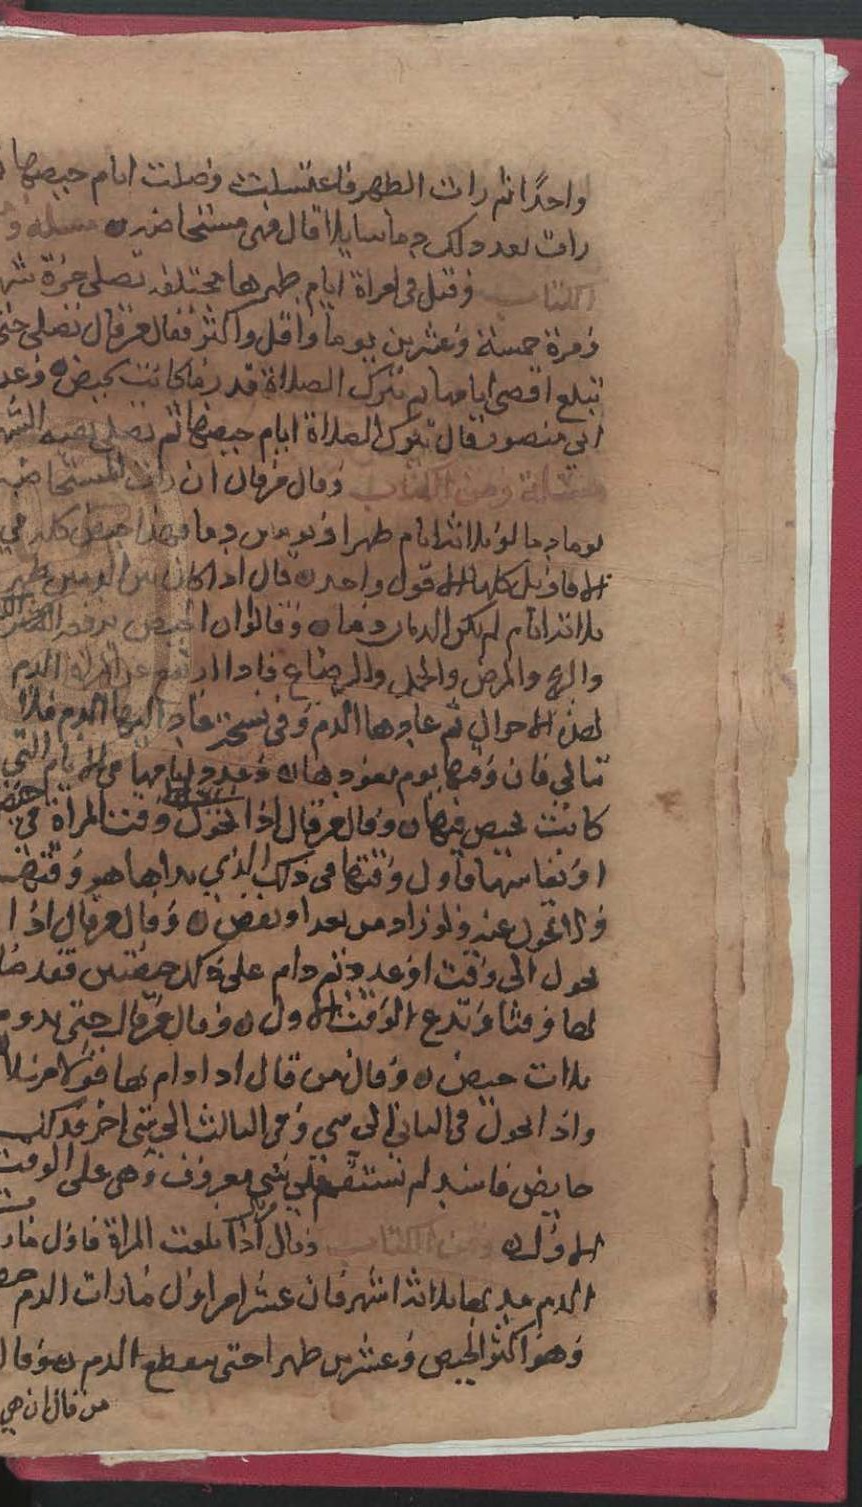 واحدًا ثم رات الطهر فاغتسلت وصلت ايام حيضها
رات بعد ذلك دما سايلا قال فهي مستحاضه مسلة و
الكتاب وقيل في امراة ايام طهرها مختلفه تصلي مرة
ومرة خمسة وعشرين يوما واقل واكثر فقال من قال تصلي حتى
تبلغ اقصى ايامها ثم تترك الصلاة قدر ما كانت تحيض وعن
ابي منصور قال تترك الصلاة ايام حيضها ثم تصلي بقيه الشهر
مسئلة ومن الكتاب وقال من قال ان رات المستحاضه
يوما دما ثلاثة ايام طهرا ويومين دما فهذا حيض كله في
الاقاويل كلها الا قول واحد قال اذا كان بين الدمين طهر
ثلاثة ايام لم يكن الدمان دما وقالوا ان الحيض يرفعه
والريح والمرض والحمل والرضاع فاذا ارتفع عن المراة الدم
لهذه الاحوال ثم عاودها الدم وفي نسخة عاد اليها الدم فلا
تبالي فان وقتها يوم يعودها وعدد ايامها هي الايام التي
كانت تحيض فيها وقال من قال اذا تحول وقت المراة في
او نفاسها فاول وقتها في ذلك الذي بداها هو وقتها
ولا تحول عنه ولو زاد من بعد او نقص وقال من قال اذا
تحول الى وقت او عدد ثم دام على ذلك حيضتين فقد صار
لها وقتا وتدع الوقت الاول وقال من قال حتى يدوم
ثلاث حيض وقال من قال اذا دام بها فولا مرة
واذا تحول في الثاني الى شي وفي الثالث الى شي اخر فذلك
حايض فاسد لم تستقم على شي معروف وهي على الوقت
الاول ومن الكتاب وقال اذا بلغت المراة فاول ما رات
الدم مد بها ثلاثة اشهر فان عشرا من اول ما رات الدم
وهو اكثر الحيض وعشرين طهرا حتى ينقطع الدم وقال
من قال ان هي